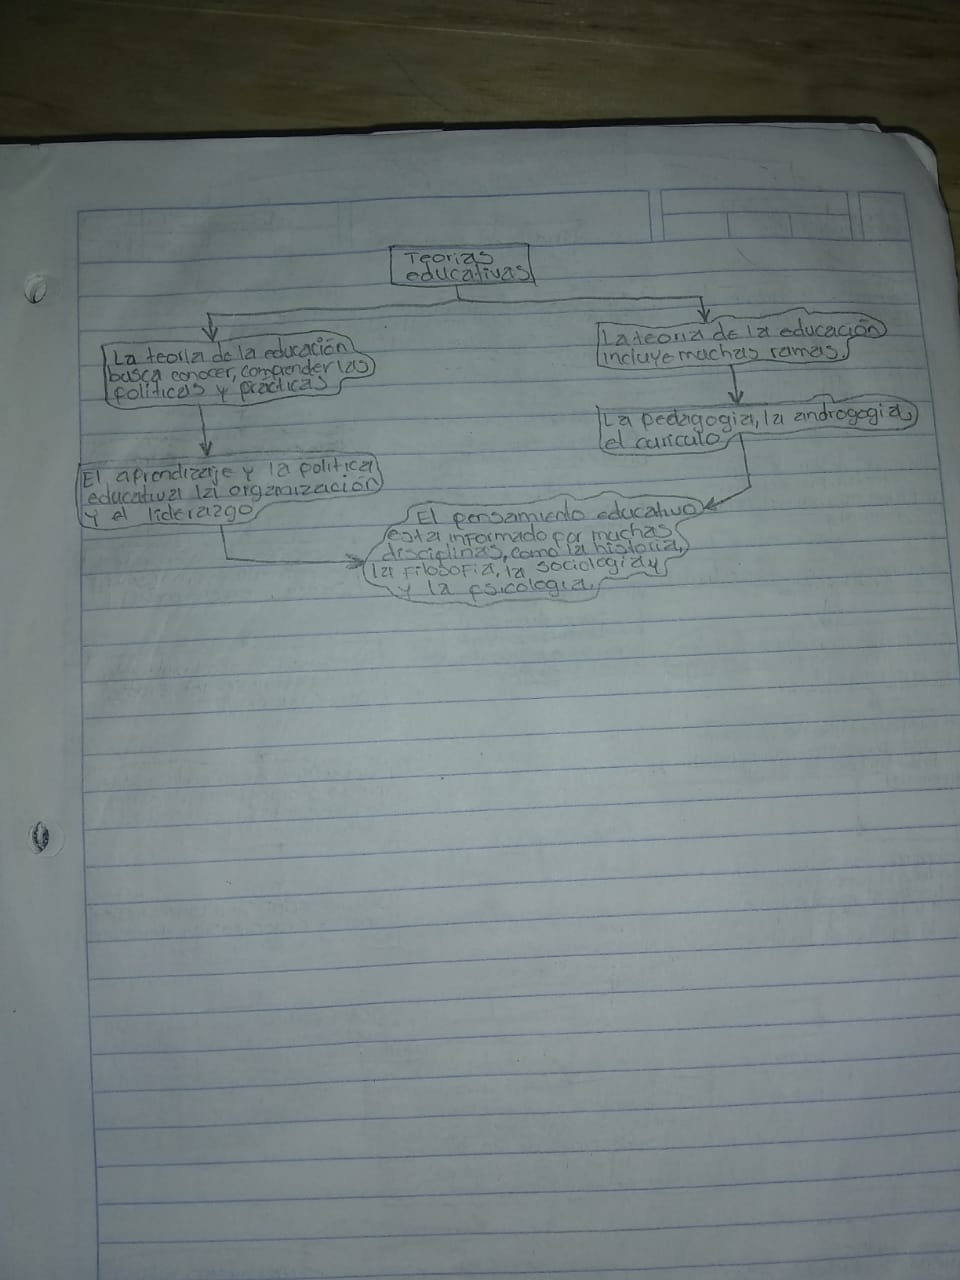 Teorias
educativas
La teoria de la educación
busca conocer, comprender las
políticas y prácticas
El aprendizaje y la politica
educativa la organización
y el liderazgo
La teoria de la educación
incluye muchas ramas.
La pedagogia, la androgogia,
el curiculo
El pensamiento educativo
esta informado por muchas
disciplinas, como la historia,
la filosofia, la sociologia y
y la psicologia.